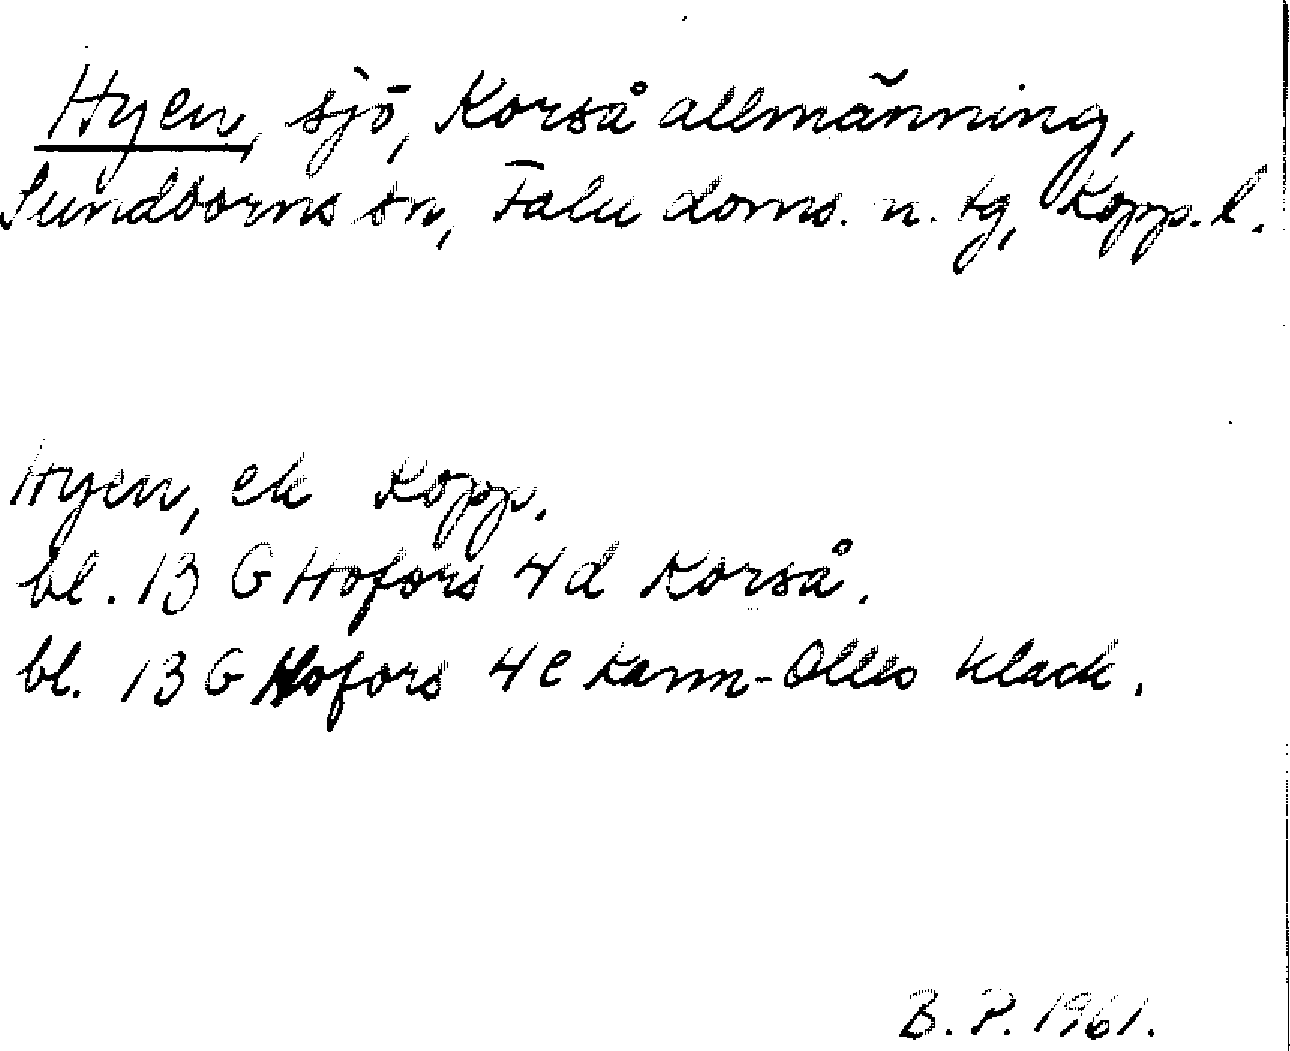 Hyen, sjö, Korså allmänning,
Sundborns sn, Falu doms. n. tg, Kopp. l.
Hyen, ek Kopp.
bl. 13 G Hofors 4d Korså.
bl. 13 G Hofors 4e Karm-Olles klack.
B. P. 1961.